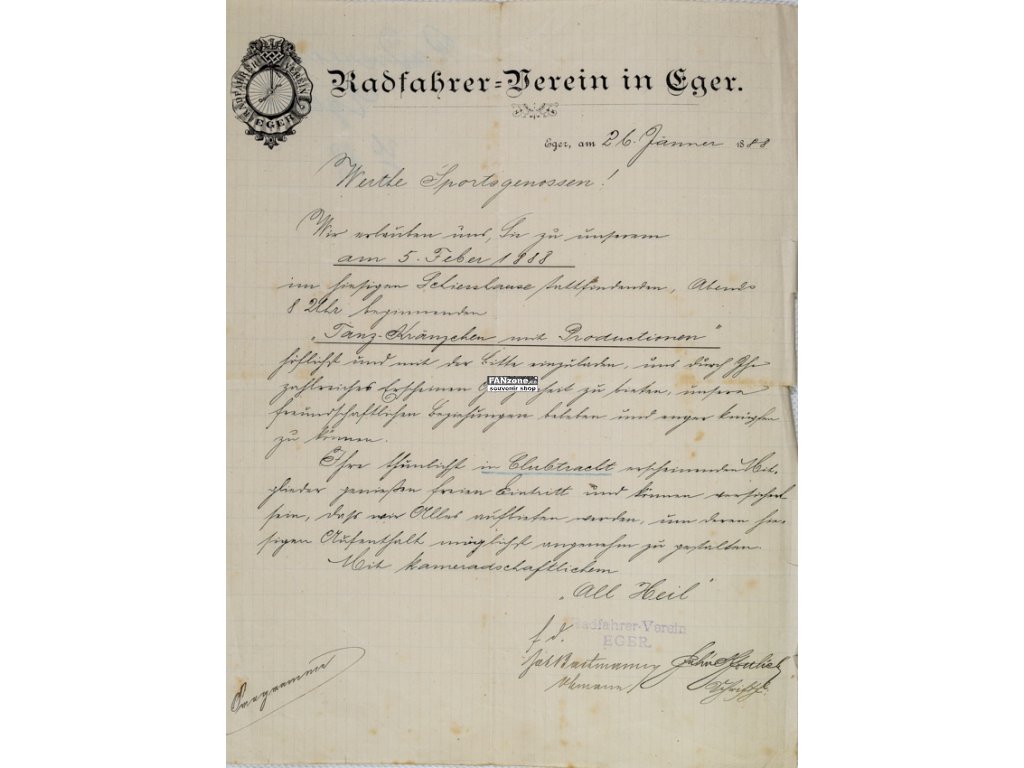 RADFAHRER VEREIN
EGER
Radfahrer-Verein in Eger.
Eger, am 26. Jänner 1888
Werthe Sportsgenossen!
Wir erlauben uns, Sie zu unserem
am 5. Feber 1888
im hiesigen Schiesshause stattfindenden, Abends
8 Uhr beginnenden
„Tanz-Kränzchen mit Productionen"
höflichst und mit der Bitte einzuladen, uns durch Ihr
zahlreiches Erscheinen Gelegenheit zu bieten, unsere
FANzone.cz
souvenir shop
freundschaftlichen Beziehungen beleben und enger knüpfen
zu können.
Ihre thunlichst in Clubtracht erscheinenden Mit-
glieder genießen freien Eintritt und können versichert
sein, daß wir Alles aufbieten werden, um deren hie-
sigen Aufenthalt möglichst angenehm zu gestalten.
Mit kameradschaftlichem
„All Heil"
Radfahrer-Verein
EGER.
f. d.
Obmann
Schriftf.